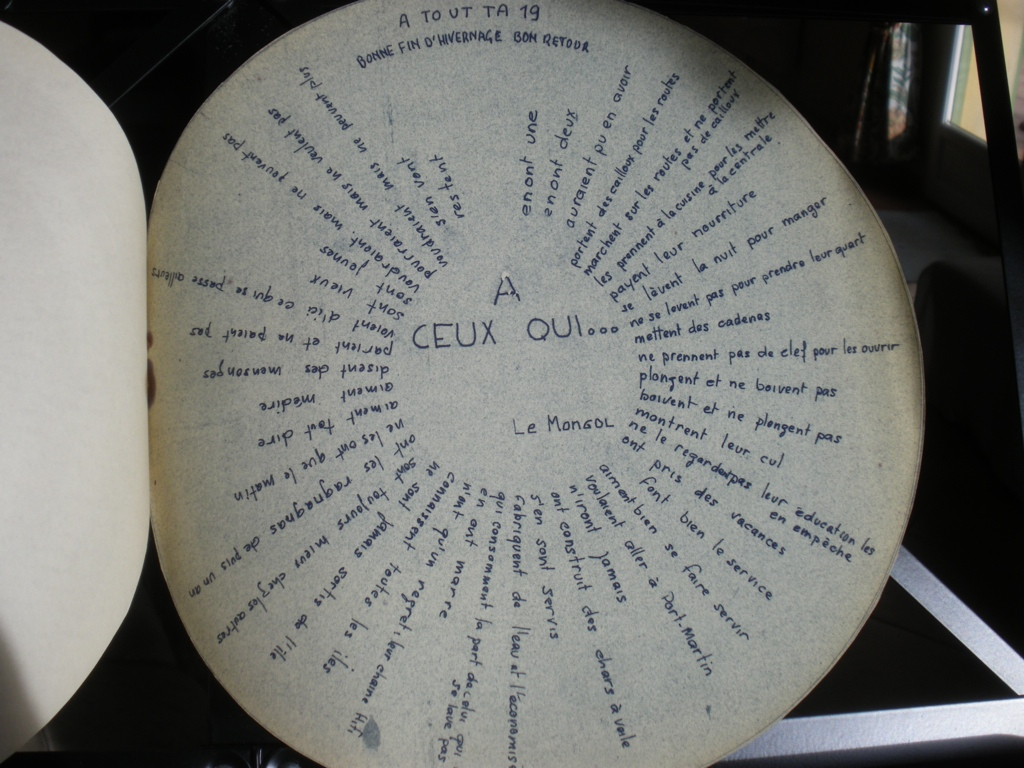 A TOUT TA 19
BONNE FIN D'HIVERNAGE BON RETOUR
A
CEUX QUI...
Le MONGOL
en ont une
en ont deux
auraient pu en avoir
portent des cailloux pour les routes
marchent sur les routes et ne portent
pas de cailloux
les prennent à la cuisine pour les mettre
à la centrale
payent leur nourriture
se lèvent la nuit pour manger
ne se lèvent pas pour prendre leur quart
mettent des cadenas
ne prennent pas de clef pour les ouvrir
plongent et ne boivent pas
boivent et ne plongent pas
montrent leur cul
ne le regardent pas leur éducation les
en empêche
ont pris des vacances
font bien le service
aiment bien se faire servir
voulaient aller à Port-Martin
n'iront jamais
ont construit des chars à voile
s'en sont servis
fabriquent de l'eau et l'économise
qui consomment la part de celui qui
se lave pas
en ont marre
n'ont qu'un regret: leur chaine Hi.fi
connaissent toutes les îles
ne sont jamais sortis de l'île
sont toujours mieux chez les autres
ont les ragnagnas depuis un an
ne les ont que le matin
aiment tout dire
aiment médire
disent des mensonges
parient et ne paient pas
voient d'ici ce qui se passe ailleurs
sont vieux
sont jeunes
voudraient mais ne peuvent pas
pourraient mais ne veulent pas
voudraient mais ne peuvent plus
s'en vont
restent